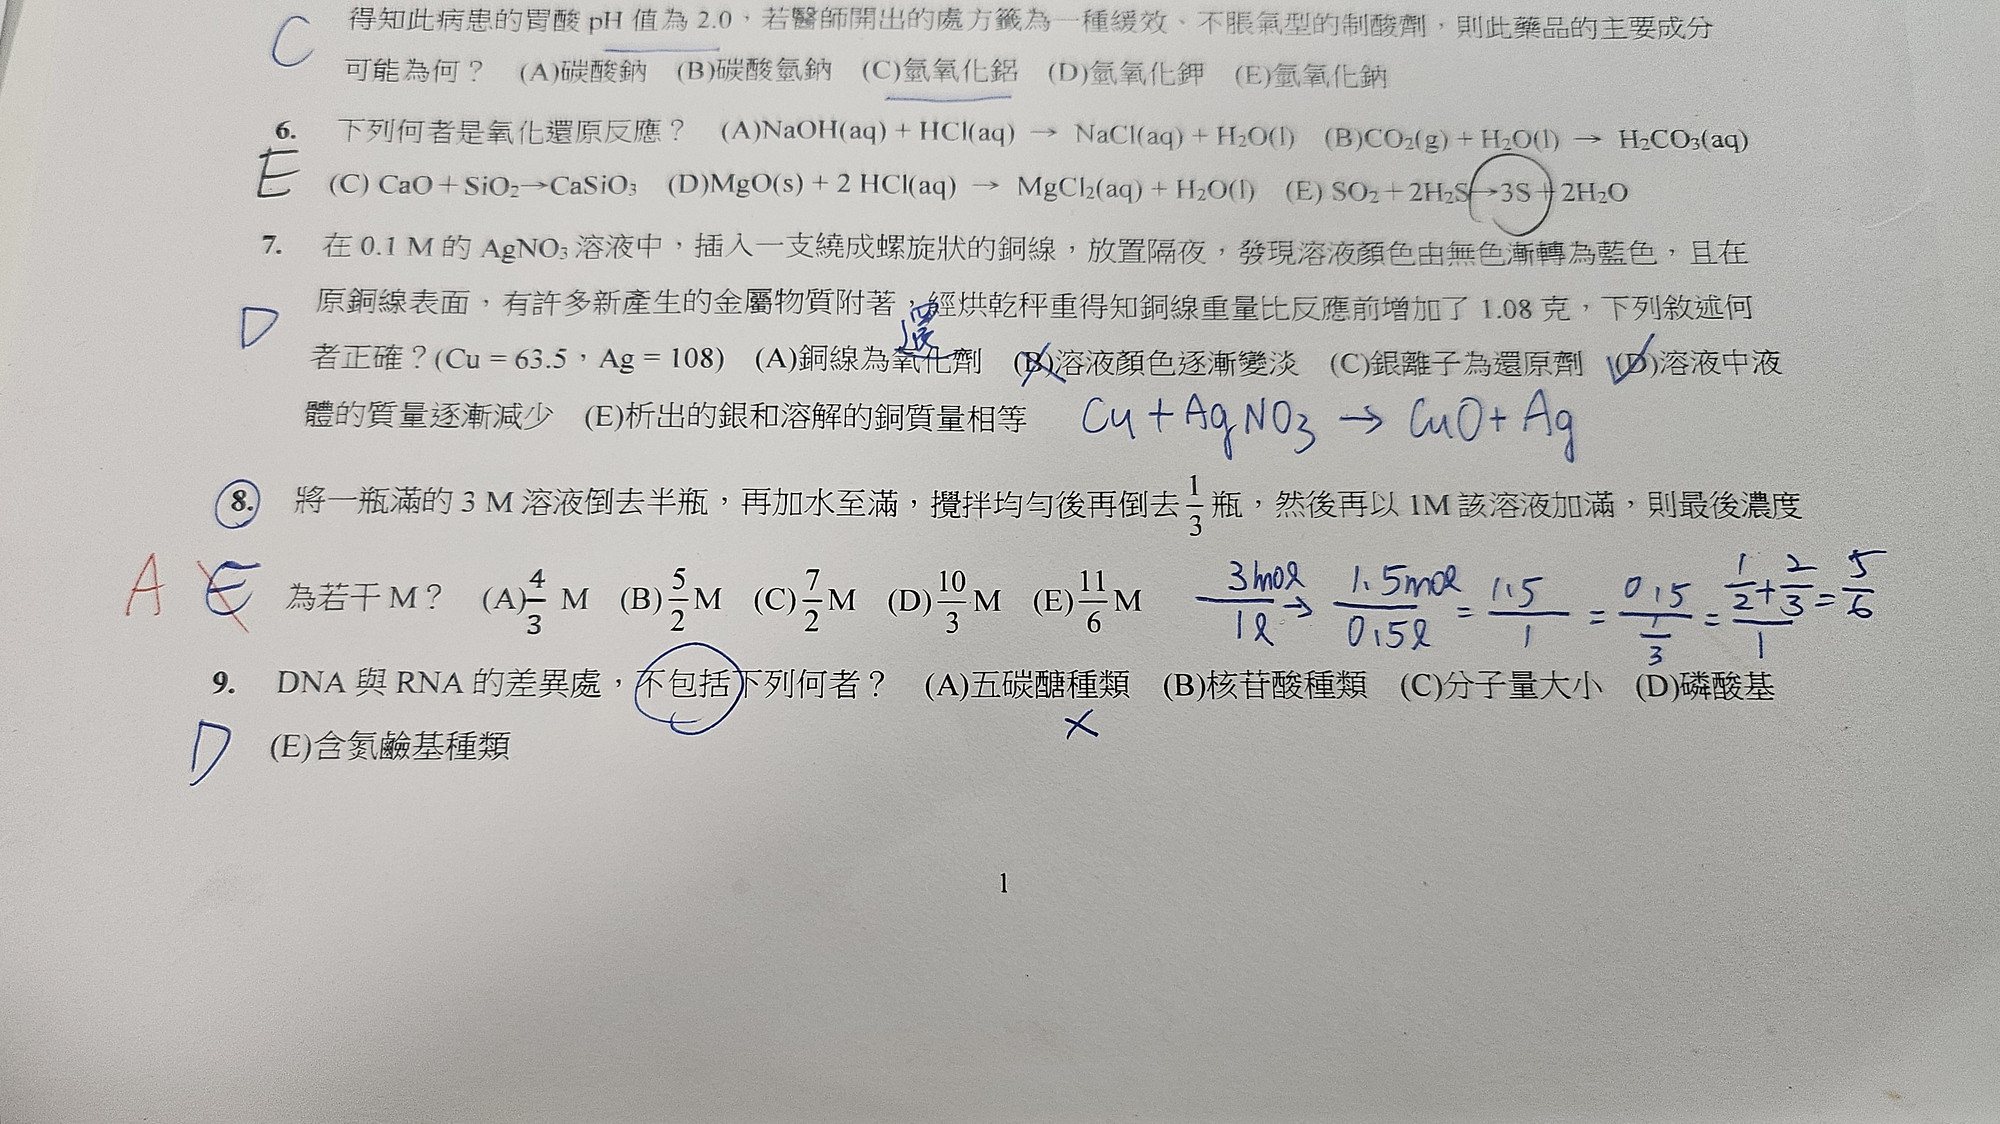 得知此病患的胃酸 pH 值為 2.0，若醫師開出的處方籤為一種緩效、不脹氣型的制酸劑，則此藥品的主要成分
C
可能為何？ (A)碳酸鈉 (B)碳酸氫鈉 (C)氫氧化鋁 (D)氫氧化鉀 (E)氫氧化鈉
6. 下列何者是氧化還原反應？ (A)NaOH(aq) + HCl(aq) → NaCl(aq) + H₂O(l) (B)CO₂(g) + H₂O(l) → H₂CO₃(aq)
E
(C) CaO + SiO₂→CaSiO₃ (D)MgO(s) + 2 HCl(aq) → MgCl₂(aq) + H₂O(l) (E) SO₂ + 2H₂S→3S + 2H₂O
7. 在 0.1 M 的 AgNO₃ 溶液中，插入一支繞成螺旋狀的銅線，放置隔夜，發現溶液顏色由無色漸轉為藍色，且在
原銅線表面，有許多新產生的金屬物質附著，經烘乾秤重得知銅線重量比反應前增加了 1.08 克，下列敘述何
D
還
者正確？(Cu = 63.5，Ag = 108) (A)銅線為氧化劑 (B)溶液顏色逐漸變淡 (C)銀離子為還原劑 (D)溶液中液
體的質量逐漸減少 (E)析出的銀和溶解的銅質量相等 Cu + AgNO₃ → CuO + Ag
8. 將一瓶滿的 3 M 溶液倒去半瓶，再加水至滿，攪拌均勻後再倒去 1/3 瓶，然後再以 1M 該溶液加滿，則最後濃度
A E
為若干 M？ (A) 4/3 M (B) 5/2 M (C) 7/2 M (D) 10/3 M (E) 11/6 M
3mol/1l → 1.5mol/0.5l = 1.5/1 = 0.5/(1/3) = (1/2+2/3)/1 = 5/6
9. DNA 與 RNA 的差異處，不包括下列何者？ (A)五碳醣種類 (B)核苷酸種類 (C)分子量大小 (D)磷酸基
D
(E)含氮鹼基種類
1